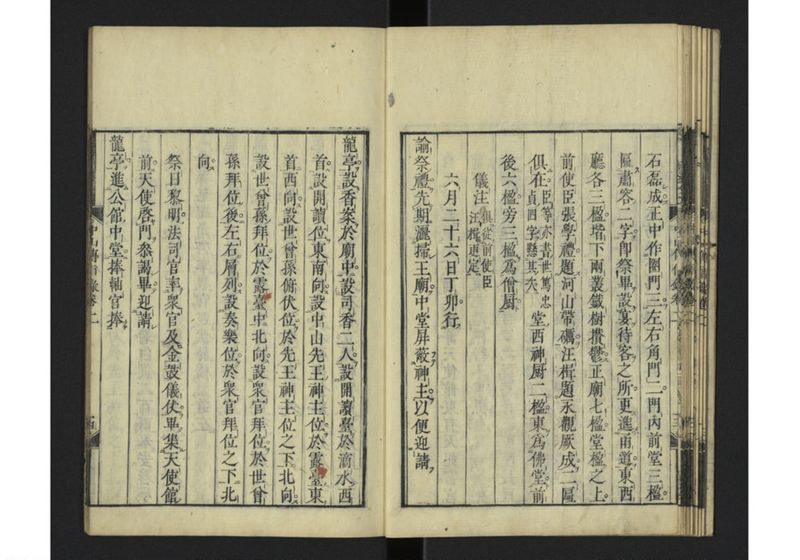 石磊成正中作圈門三左右角門二門內前堂三楹
匾肅容二字即祭畢設宴待客之所更進甬道東西
廳各三楹堦下兩叢鐵樹攅鬱正廟七楹堂楹之上
前使臣張學禮題河山帶礪汪楫題永觀厥成二匾
俱在臣等亦書世篤忠貞四字懸其次堂西神厨二楹東為佛堂前
後六楹旁三楹為僧厨
儀注俱從前使臣汪楫更定
六月二十六日丁卯行
諭祭禮先期灑掃王廟中堂屏蔽神主以便迎請
龍亭設香案於廟中設司香二人設開讀臺於滴水西
首設開讀位東南向設中山先王神主位於露臺東
首西向設世曾孫俯伏位於先王神主位之下北向
設世曾孫拜位於露臺中北向設眾官拜位於世曾
孫拜位後左右層列設奏樂位於眾官拜位之下北
向
祭日黎明法司官率眾官及金鼓儀仗畢集天使館
前天使啓門叅謁畢迎請
龍亭進公館中堂捧軸官捧
中山傳信錄卷二